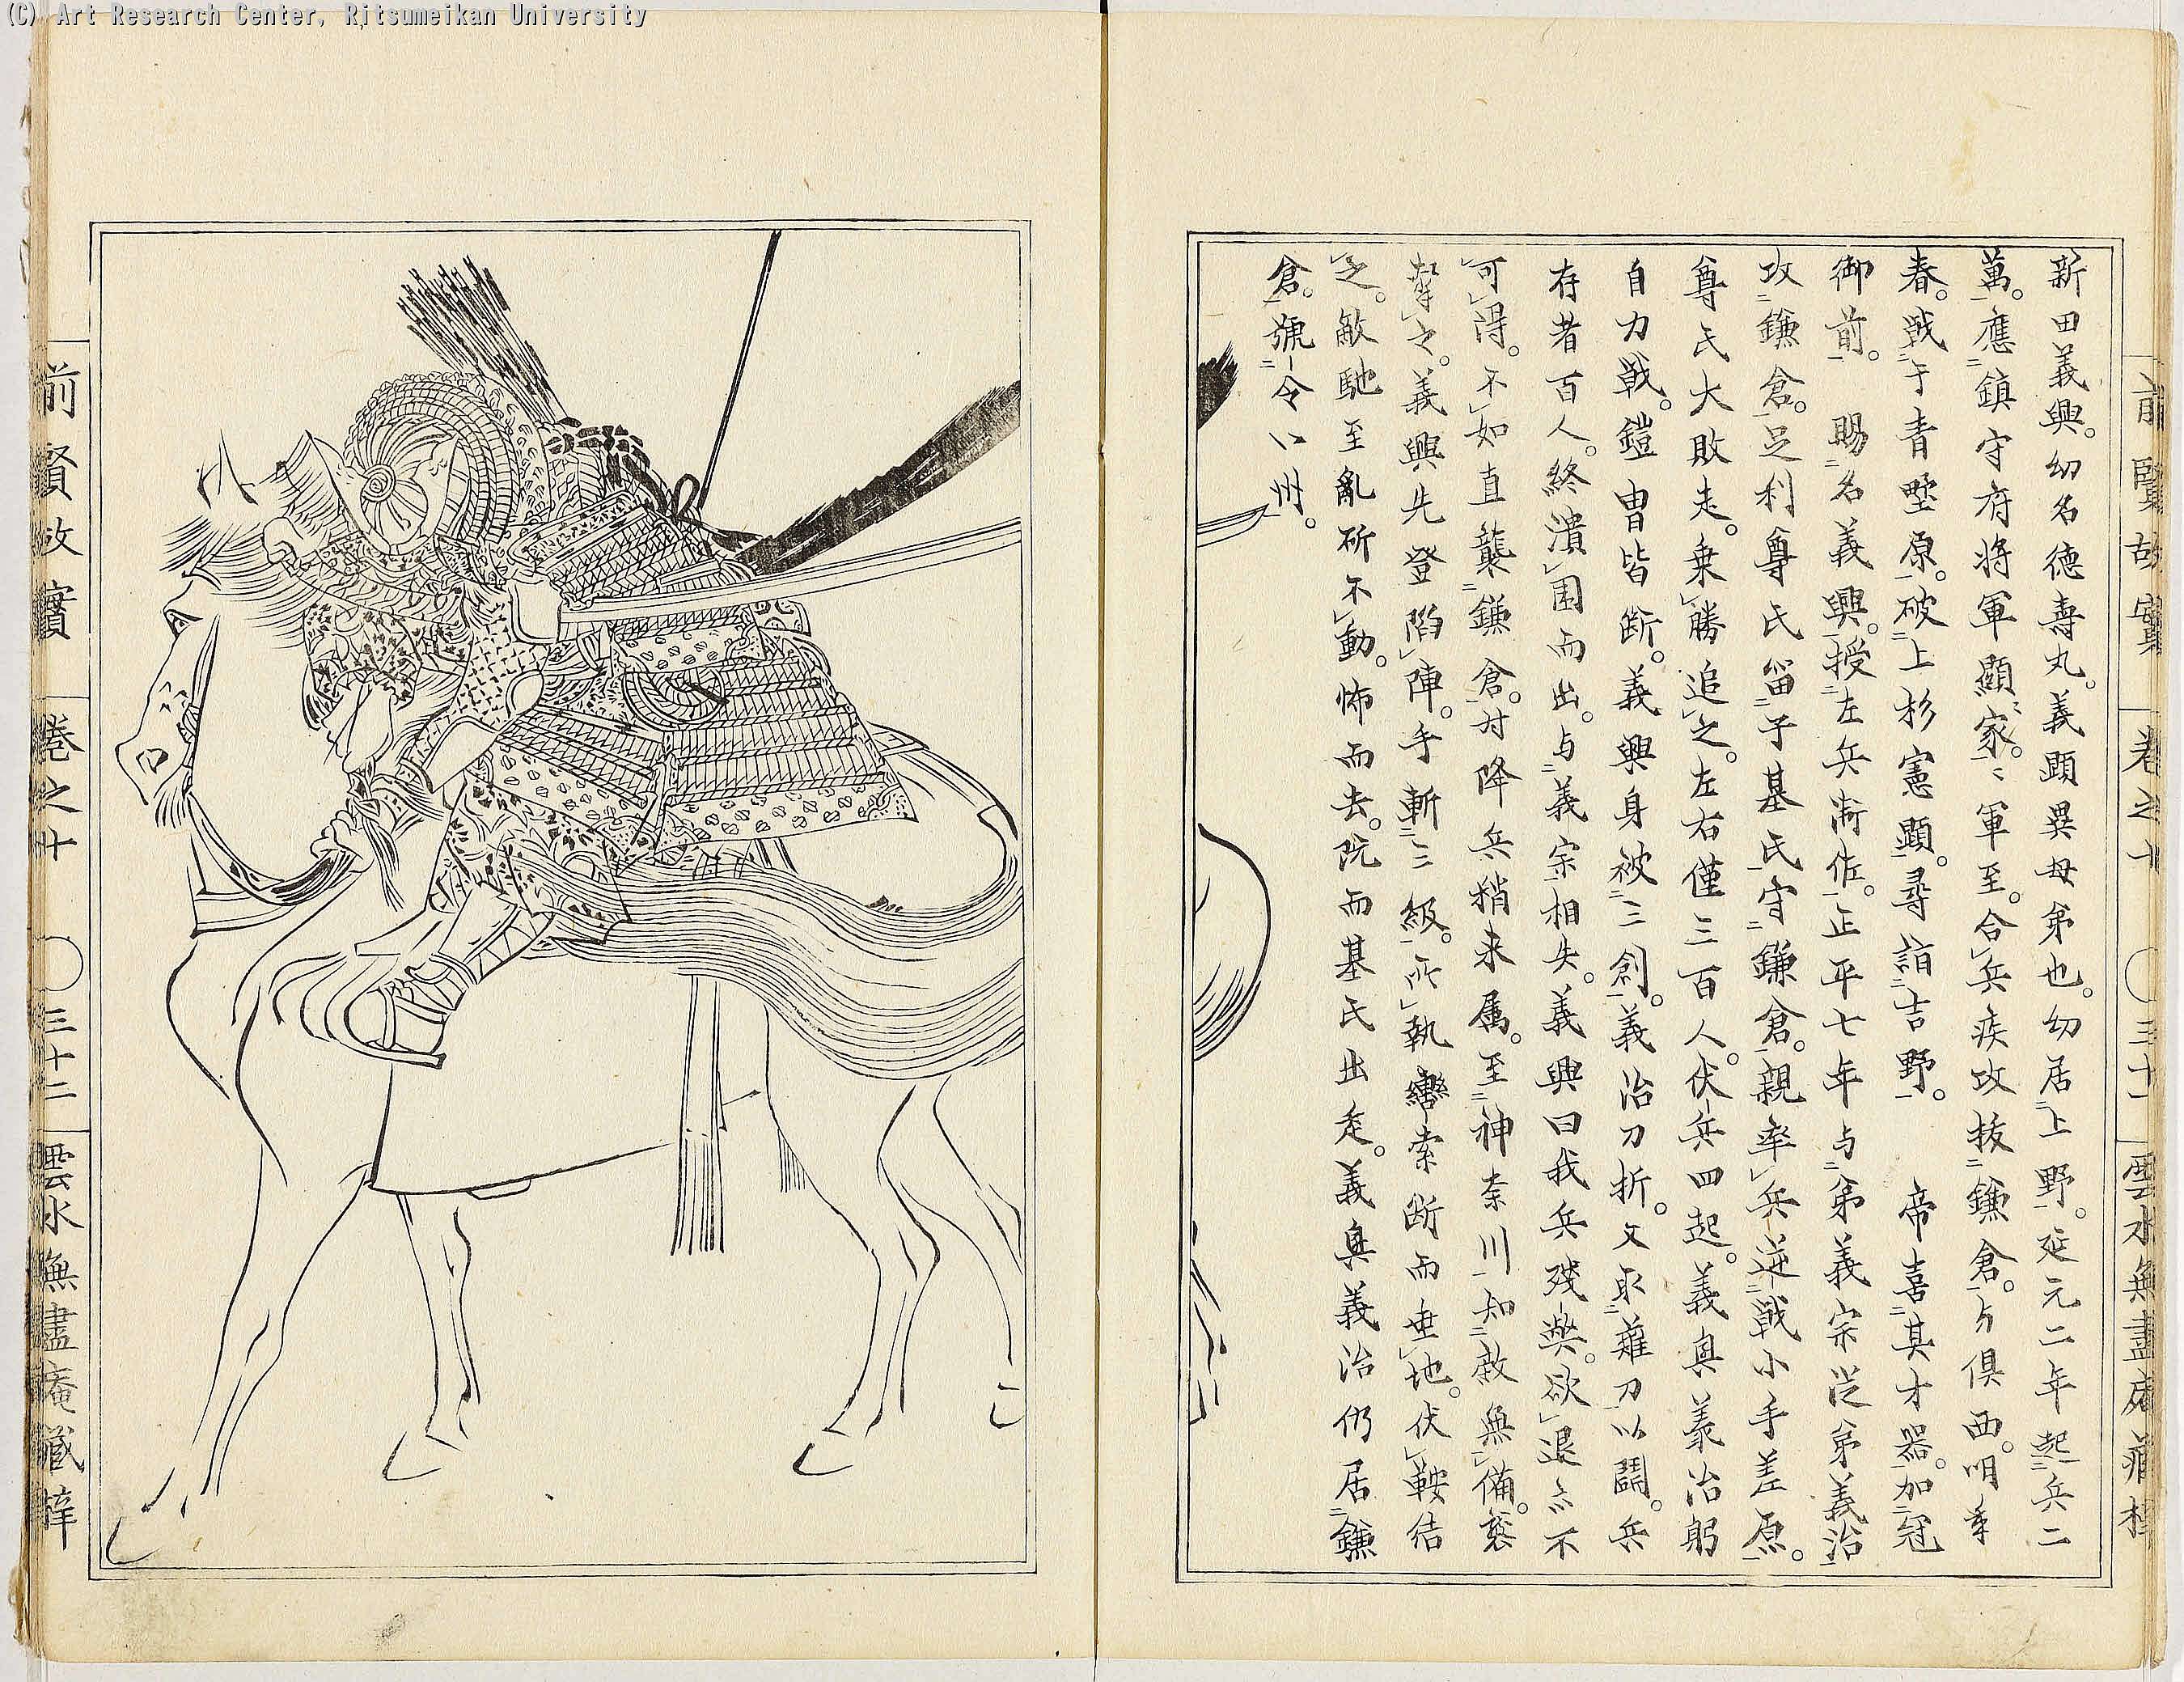 (C) Art Research Center, Ritsumeikan University
前賢故實 卷之十 ○三十一 雲水無盡庵藏梓
新田義興。幼名徳壽丸。義顕異母弟也。幼居上野。延元二年起兵二
萬。應鎮守府将軍顯家。〻軍至。合兵疾攻抜鎌倉。与倶西。明年
春。戦于青墅原。破上杉憲顕。尋詣吉野。 帝喜其才器。加冠
御前。 賜名義興。授左兵衛佐。正平七年与弟義宗從弟義治
攻鎌倉。足利尊氏留子基氏守鎌倉。親率兵逆戦小手差原。
尊氏大敗走。乗勝追之。左右僅三百人。伏兵四起。義興義治躬
自力戦。鎧冑皆断。義興身被三創。義治刀折。又取薙刀以闘。兵
存者百人。終潰圍而出。与義宗相失。義興曰我兵残弊。欲退亦不
可得。不如直襲鎌倉。対降兵稍来属。至神奈川知敵無備。襲
撃之。義興先登陥陣。手斬三級。所執轡索断而垂地。伏鞍結
之。敵馳至亂斫不動。怖而去。既而基氏出走。義興義治仍居鎌
倉。號令八州。
前賢故實 卷之十 ○三十二 雲水無盡庵藏梓